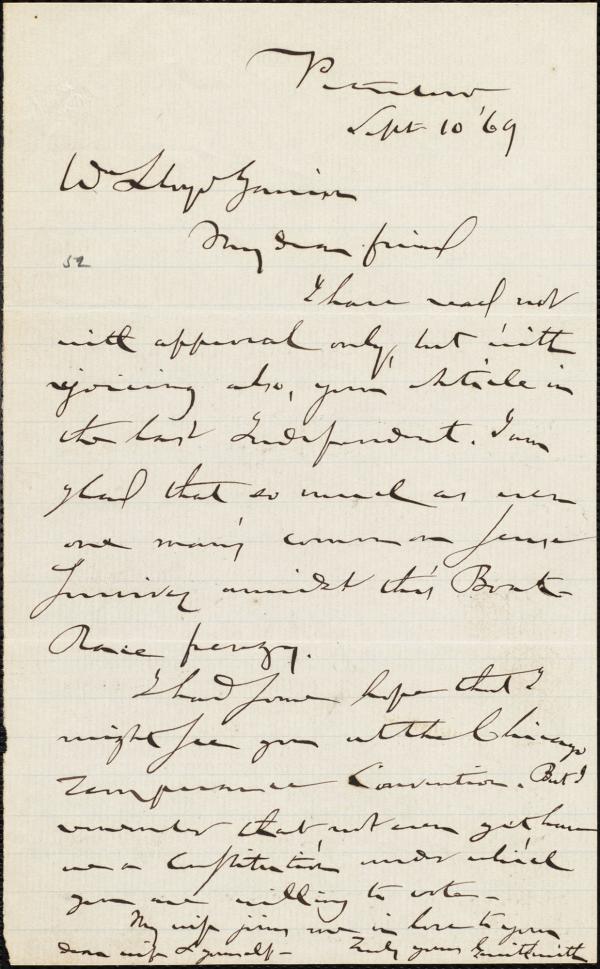 Peterboro
Sept 10 '69
Wm Lloyd Garrison
My dear friend
52
I have read not
with approval only, but with
rejoicing also, your Article in
the last Independent. I am
glad that so much as even
one man's common sense
survives amidst this Boat
Race frenzy.
I had some hope that I
might see you at the Chicago
Temperance Convention. But I
remember that not even yet have
we a Constitution under which
you are willing to vote -
My wife joins me in love to your
dear wife & yourself - Truly yours Gerrit Smith